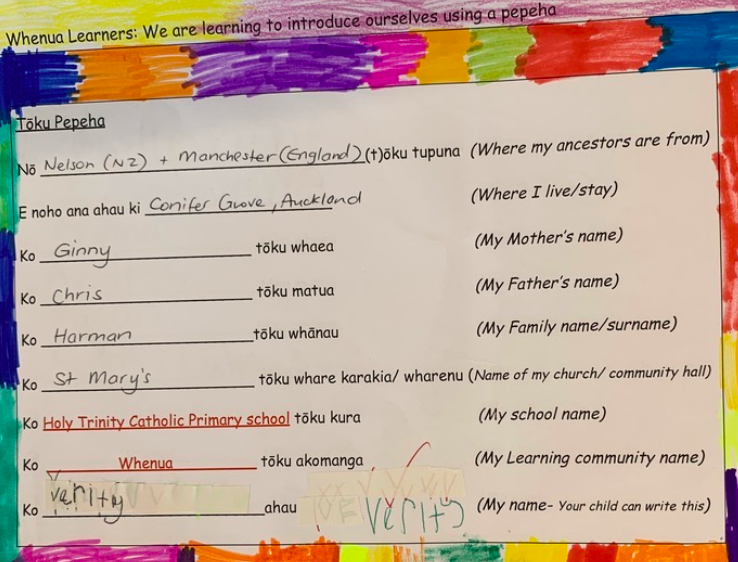 Whenua Learners: We are learning to introduce ourselves using a pepeha
Tōku Pepeha
Nō Nelson (NZ) + Manchester (England) (t)ōku tupuna (Where my ancestors are from)
E noho ana ahau ki Conifer Grove, Auckland (Where I live/stay)
Ko Ginny tōku whaea (My Mother's name)
Ko Chris tōku matua (My Father's name)
Ko Harman tōku whānau (My Family name/surname)
Ko St Mary's tōku whare karakia/ wharenu (Name of my church/ community hall)
Ko Holy Trinity Catholic Primary school tōku kura (My school name)
Ko Whenua tōku akomanga (My Learning community name)
Ko verity ahau Verity (My name- Your child can write this)